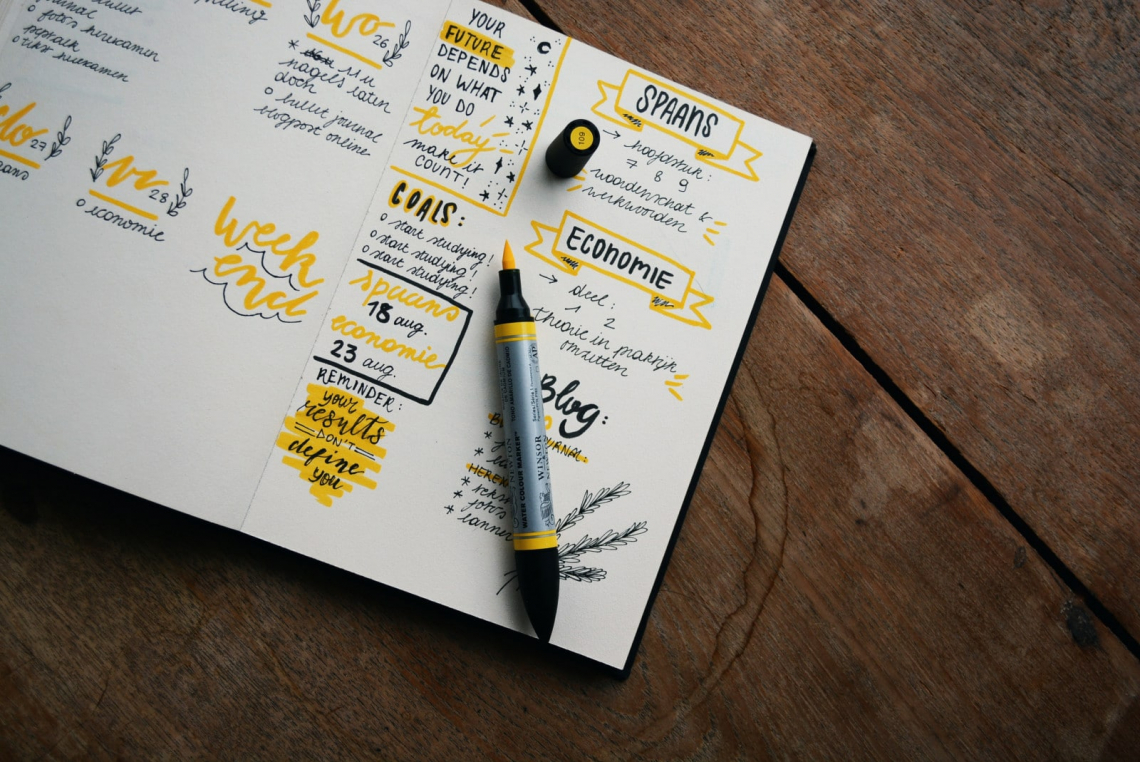 journal
o foto's herexamen
o vlog herexamen
wo 26
* 11 u
nagels laten
doen
o bullet journal
blogpost online
do 27
vr 28
o economie
week
end
YOUR
FUTURE
DEPENDS
ON WHAT
YOU DO
today!
make it
COUNT!
GOALS:
o start studying!
o start studying!
o start studying!
spaans
18 aug.
economie
23 aug.
REMINDER:
your
results
DON'T
define
you
109
SPAANS
→ hoofdstuk:
7 8 9
woordenschat &
werkwoorden
ECONOMIE
→ deel:
1 2
theorie in praktijk
omzetten
Blog:
JOURNAL:
HEREX
*
* foto's
WATER COLOUR MARKER™
WINSOR
NEWTON